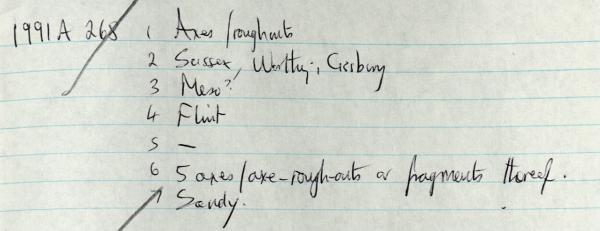 1991A 268 1 Axes/roughouts
2 Sussex, Worthing, Cissbury
3 Meso?
4 Flint
5 —
6 5 axes/axe-rough-outs or fragments thereof.
7 Sandy.